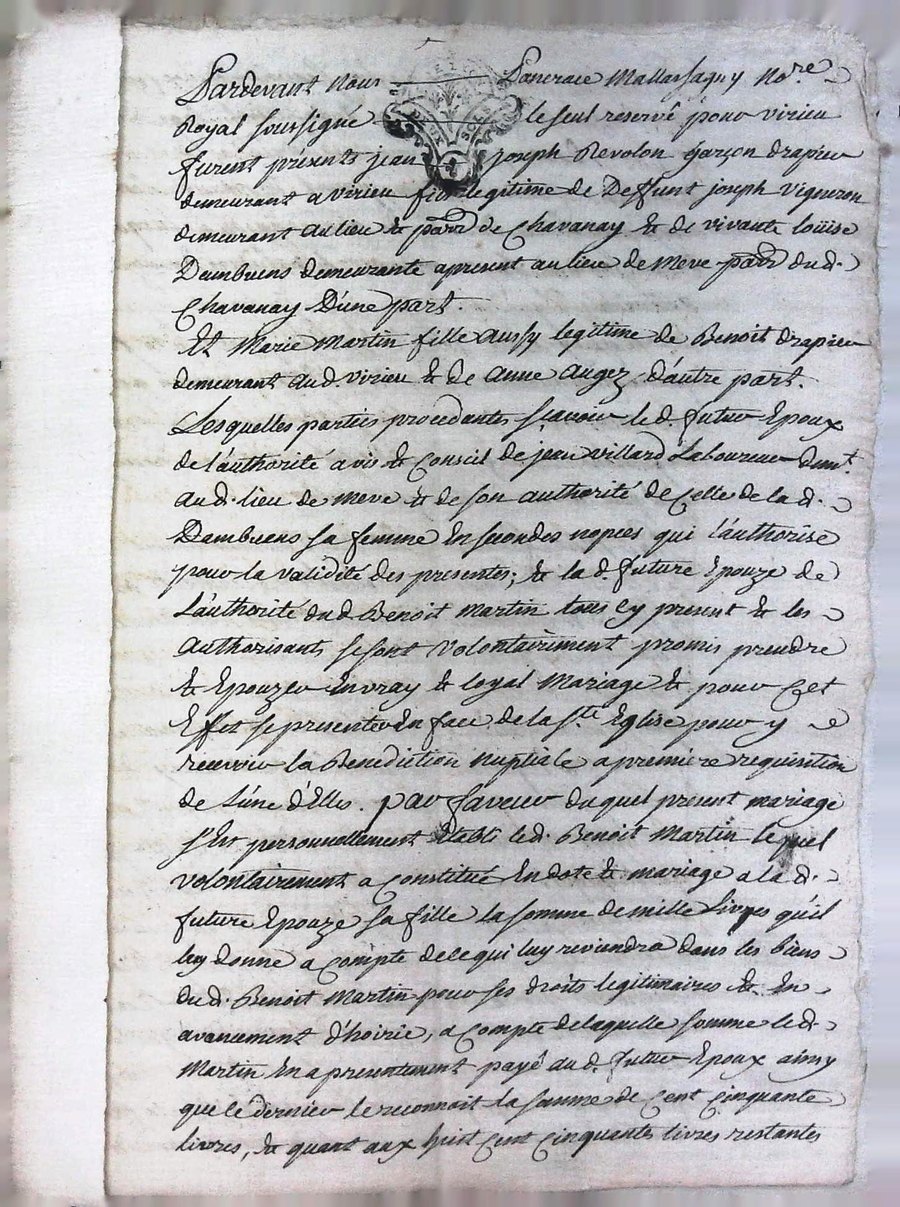 Pardevant nous Pancrace Mallassagny No.re
Royal soussigné le seul reservé pour virieu
furent présents jean joseph Revolon garçon drapier
demeurant a virieu fils legitime de Deffunt joseph vigneron
demeurant au lieu & parr de Chavanay & de vivante loüise
Dambuens demeurante apresent au lieu de Meve parr du d.
Chavanay D'une part.
Et Marie Martin fille aussy legitime de Benoit drapier
demeurant aud virieu & de anne augez d'autre part.
Lesquelles parties procedantes sçavoir le d. futur Epoux
de l'authorité avis & Conseil de jean villard Laboureur demt.
au d. lieu de Meve & de son authorité de Celle de la d.
Dambuens sa femme En secondes nopces qui l'authorise
pour la validité des presentes; & la d. future Epouze de
L'authorité dud Benoit Martin tous Cy present & les
authorisants se sont volontairement promis prendre
& Epouzer En vray & loyal Mariage & pour Cet
Effet se presenter En face de la Ste Eglise pour y
recevoir la Benediction nuptiale a premiere requisition
de L'une d'Elles. par faveur duquel present mariage
s'Est personnellement Etabli le d. Benoit Martin lequel
volontairement a Constitué En dote & mariage a la d.
future Epouze sa fille la somme de mille Livres qu'il
luy donne a Compte de Ce qui luy reviendra dans les biens
du d. Benoit Martin pour ses droits legitimaires & En
avancement d'hoirie, a Compte de laquelle somme le d.
Martin En a presentement payé au d. futur Epoux ainsy
que le dernier le reconnoit la somme de Cent Cinquante
livres, & quant aux huit Cent Cinquante livres restantes